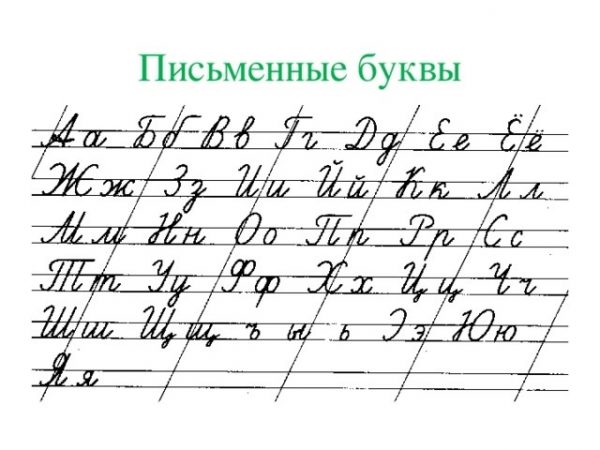 Письменные буквы
Аа Бб Вв Гг Дд Ее Ёё
Жж Зз Ии Йй Кк Лл
Мм Нн Оо Пп Рр Сс
Тт Уу Фф Хх Цц Чч
Шш Щщ ъ ы ь Ээ Юю
Яя